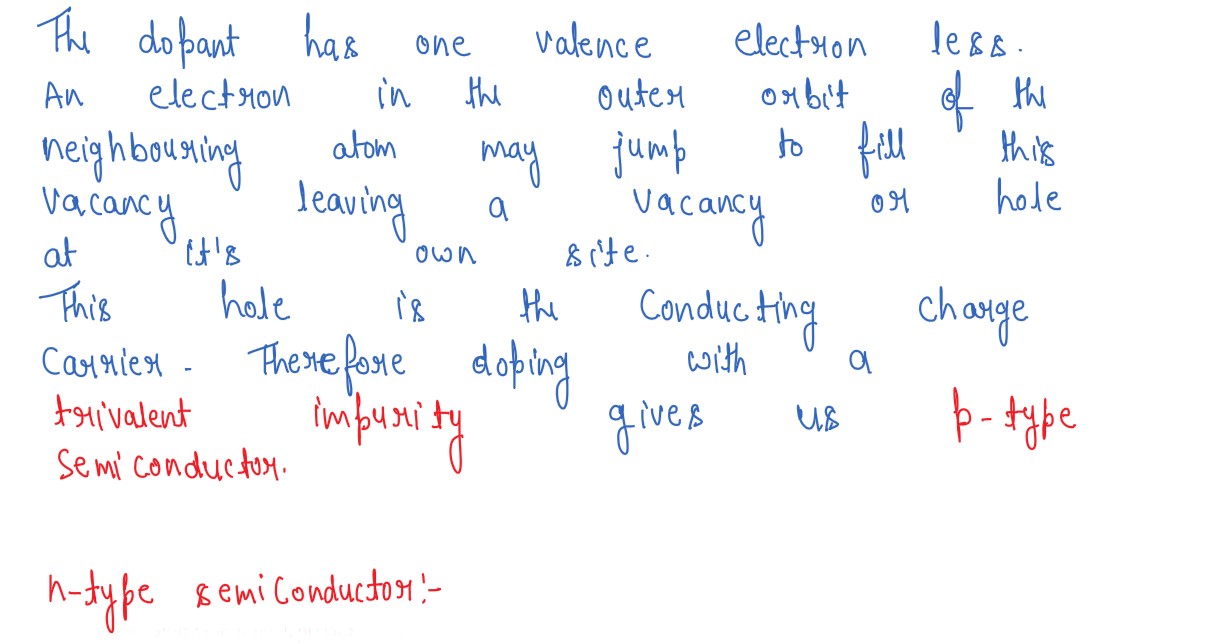 The dopant has one valence electron less.
An electron in the outer orbit of the
neighbouring atom may jump to fill this
vacancy leaving a vacancy or hole
at it's own site.
This hole is the Conducting charge
Carrier. Therefore doping with a
trivalent impurity gives us p-type
Semiconductor.
n-type semiconductor:-